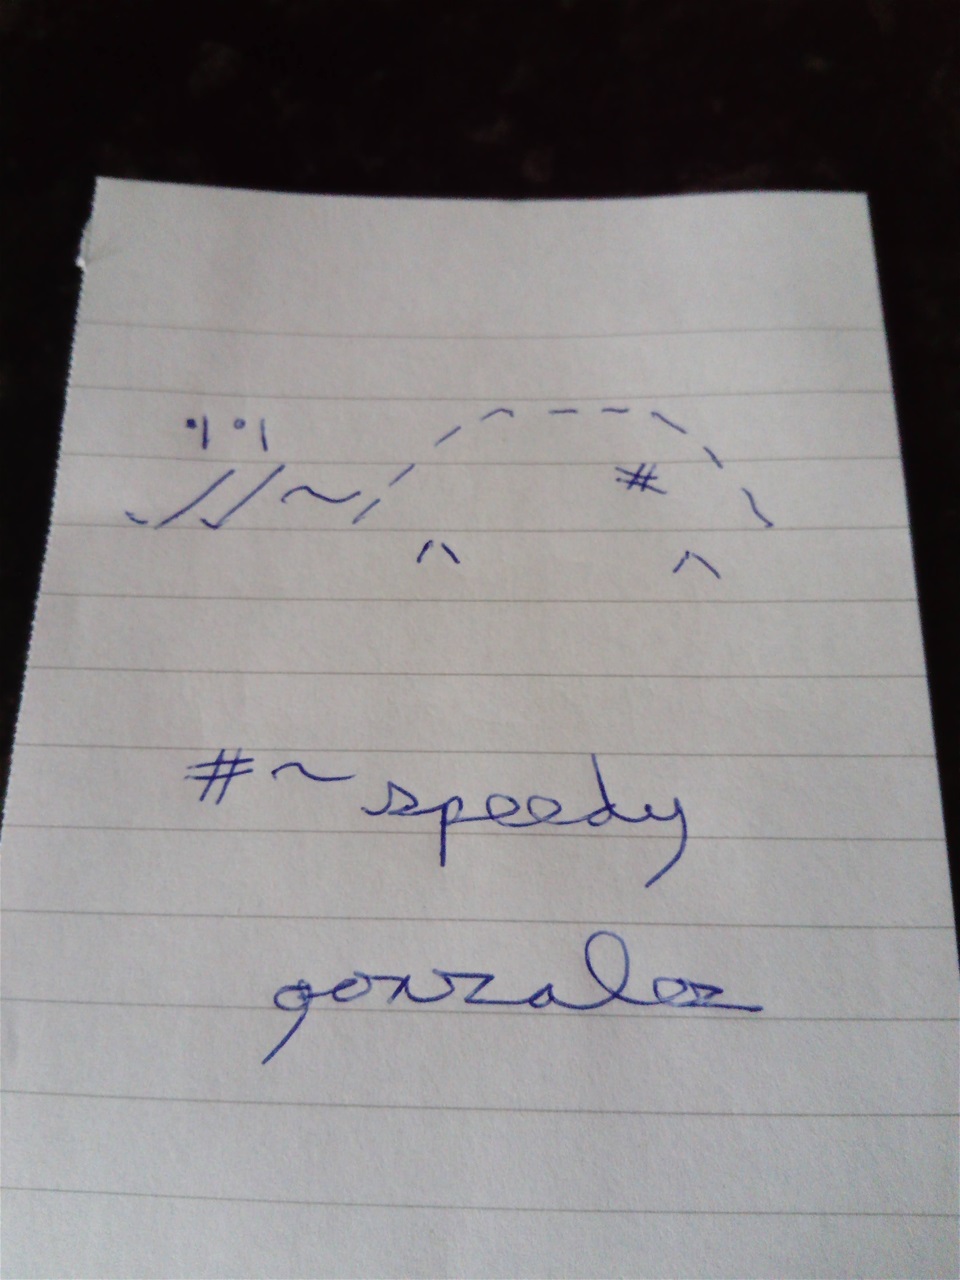 #~speedy
gonzalez